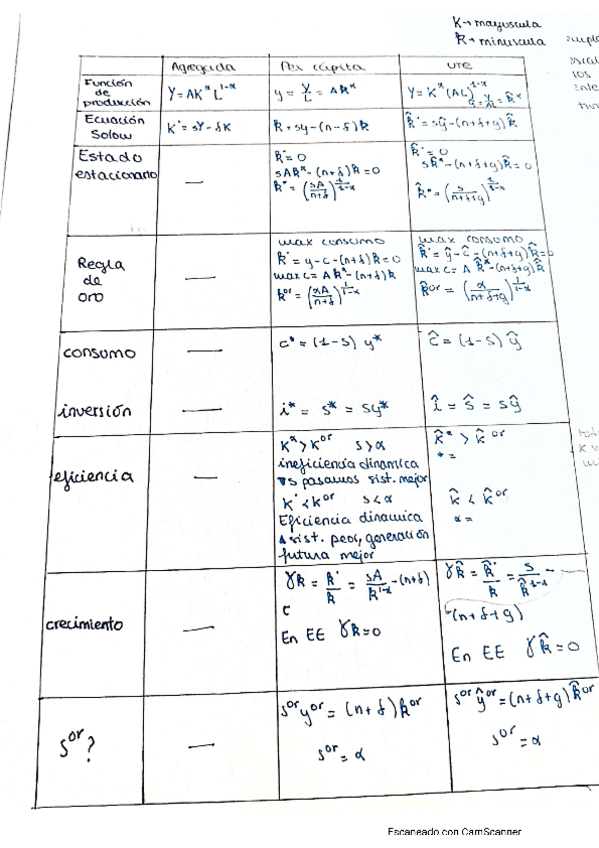 K → mayuscula
k → minuscula
Agregada
Per cápita
UTE
Función de producción
Y = AK^α L^1-α
y = Y/L = Ak^α
Y = K^α (AL)^1-α
ŷ = Y/AL = k̂^α
Ecuación Solow
K̇ = sY - δK
k + sy - (n - δ) k
k̂̇ = sŷ - (n+δ+g) k̂
Estado estacionario
—
k̇ = 0
sAk^α - (n+δ) k = 0
k* = (sA/n+δ)^1/1-α
k̂̇ = 0
sk̂^α - (n+δ+g) k̂ = 0
k̂* = (s/n+δ+g)^1/1-α
Regla de oro
—
max consumo
k̇ = y - c - (n+δ) k = 0
max c = Ak^α - (n+δ) k
k^or = (αA/n+δ)^1/1-α
max consumo
k̂̇ = ŷ - ĉ - (n+δ+g) k̂ = 0
max c = A k̂^α - (n+δ+g) k̂
k̂^or = (α/n+δ+g)^1/1-α
consumo
—
c* = (1-s) y*
ĉ = (1-s) ŷ
inversión
—
i* = s* = sy*
î = ŝ = sŷ
eficiencia
—
k* > k^or s > α
ineficiencia dinamica
▼s pasamos sist. mejor
k* < k^or s < α
Eficiencia dinamica
▲ sist. peor, generación
futura mejor
k̂* > k̂^or
* =
k̂ < k̂^or
α =
crecimiento
—
γk = k̇/k = sA/k^1-α - (n+δ)
En EE γk = 0
γk̂ = k̂̇/k̂ = s/k̂^1-α -
(n+δ+g)
En EE γk̂ = 0
s^or ?
—
s^or y^or = (n+δ) k^or
s^or = α
s^or ŷ^or = (n+δ+g) k̂^or
s^or = α
Escaneado con CamScanner